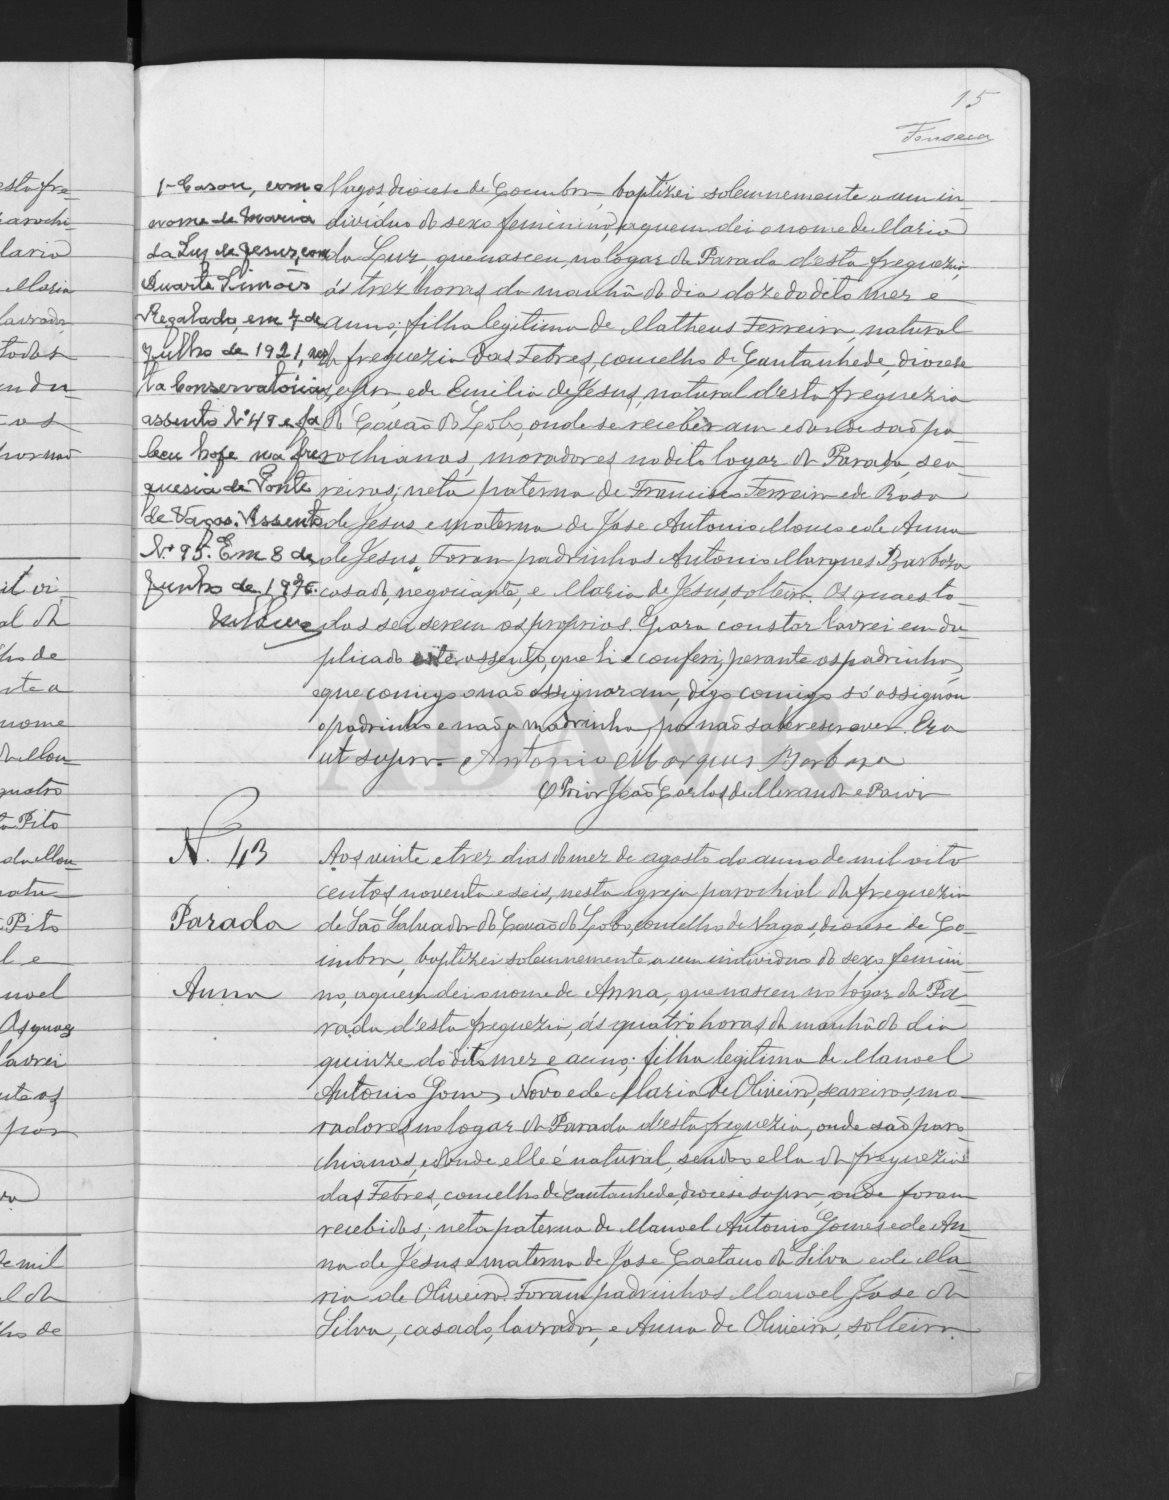 15
Fonseca
1- Casou, com o
nome de Maria
da Luz de Jesus, com
Duarte Simões
Regalado, em 7 de
Julho de 1921, nes
ta Conservatória,
assento Nº 49 e fa
leceu hoje na fre
guesia de Ponte
de Vagos. Assento
Nº 95. Em 8 de
Junho de 1976.
Vagos, diocese de Coimbra, baptizei solemnemente a um in-
dividuo do sexo feminino, a quem dei o nome de Maria
da Luz que nasceu, no logar da Parada d'esta freguezia
ás trez horas da manhã do dia doze do dito mez e
anno; filha legitima de Matheus Ferreira, natural
da freguezia das Febres, concelho de Cantanhede, diocese
supra, e de Emilia de Jesus, natural d'esta freguezia
do Covão do Lobo, onde se receberam e donde são pa-
rochianos, moradores no dito logar da Parada, sea
reiros; neta paterna de Francisco Ferreira e de Rosa
de Jesus e materna de Jose Antonio Moço e de Anna
de Jesus. Foram padrinhos Antonio Marques Barboza
casado, negociante, e Maria de Jesus, solteira. Os quaes to-
dos sei serem os proprios. E para constar lavrei em du-
plicado este assento, que li e conferi, perante os padrinhos,
e que comigo o não assignaram, digo comigo só assignou
o padrinho e não a madrinha, por não saber escrever. Era
ut supra. Antonio Marques Barboza
O Prior João Carlos de Miranda e Paiva
N. 43
Parada
Anna
Aos vinte e trez dias do mez de agosto do anno de mil oito
centos noventa e seis, nesta igreja parochial da freguezia
de São Salvador do Covão do Lobo, concelho de Vagos, diocese de Co-
imbra, baptizei solemnemente a um individuo do sexo femini-
no, a quem dei o nome de Anna, que nasceu no logar da Pa-
rada d'esta freguezia, ás quatro horas da manhã do dia
quinze do dito mez e anno; filha legitima de Manoel
Antonio Gomes Novo e de Maria de Oliveira, seareiros, mo-
radores no logar da Parada d'esta freguezia, onde são paro
chianos, e donde elle é natural, sendo ella da freguezia
das Febres, concelho de Cantanhede, diocese supra, onde foram
recebidos; neta paterna de Manoel Antonio Gomes e de An-
na de Jesus e materna de Jose Caetano da Silva e de Ma-
ria de Oliveira. Foram padrinhos Manoel Jose da
Silva, casado, lavrador, e Anna de Oliveira, solteira.